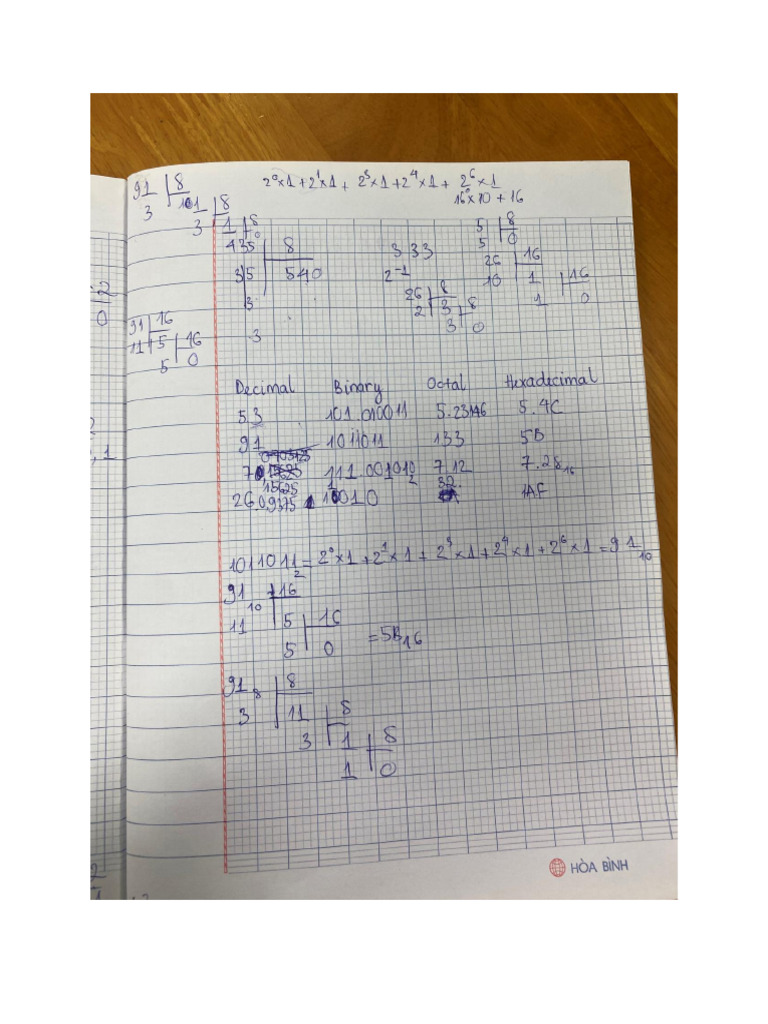 91 | 8
3
1 | 8
3 | 1 | 8
0
2⁰×1 + 2¹×1 + 2³×1 + 2⁴×1 + 2⁶×1
16⁰×10 + 16
435 | 8
35 | 540
3
3
3 33
2⁻¹
5 | 8
5 | 0
26 | 16
10 | 1 | 16
1 | 0
26 | 8
2 | 3 | 8
3 | 0
91 | 16
11 | 5 | 16
5 | 0
2
0
Decimal Binary Octal Hexadecimal
53 101.010011 5.23146 5.4C
91 1011011 133 5B
7 111.001010₂ 7.12 7.28₁₆
15625
26.0,9375 1010 32. 1AF
1011011₂ = 2⁰×1 + 2¹×1 + 2³×1 + 2⁴×1 + 2⁶×1 = 91₁₀
91₁₀ | 16
11 | 5 | 16
5 | 0 = 5B₁₆
91₈ | 8
3 | 11 | 8
3 | 1 | 8
1 | 0
HÒA BÌNH